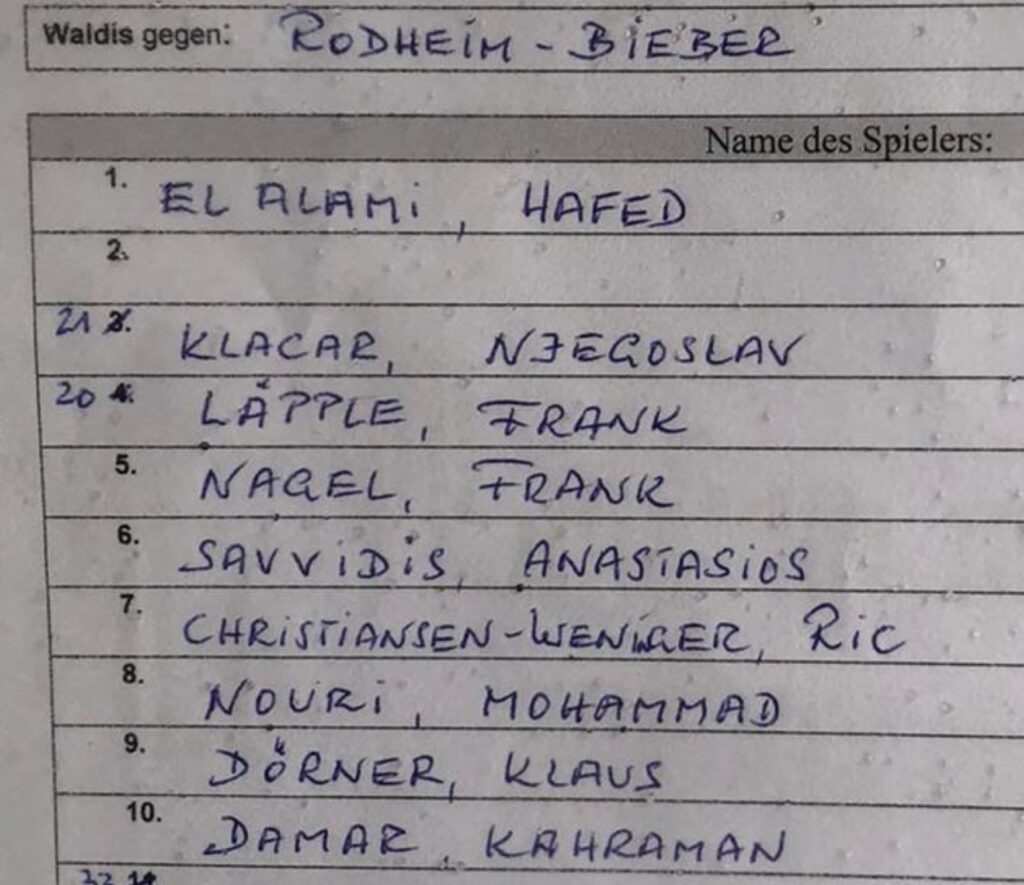 Waldis gegen: RODHEIM - BIEBER
Name des Spielers:
1. EL ALAMi, HAFED
2.
21 3. KLACAR, NJEGOSLAV
20 4. LÄPPLE, FRANK
5. NAGEL, FRANK
6. SAVViDiS, ANASTASiOS
7. CHRiSTiANSEN-WENiGER, RiC
8. NOURi, MOHAMMAD
9. DÖRNER, KLAUS
10. DAMAR, KAHRAMAN